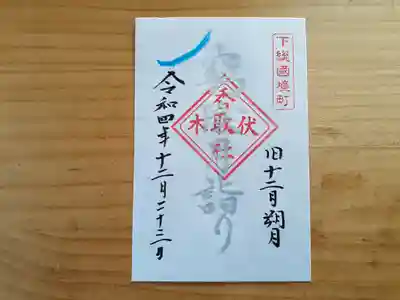 下總國境町
旧十二月朔月
詣り
伏木
香取社
令和四年十二月二十三日